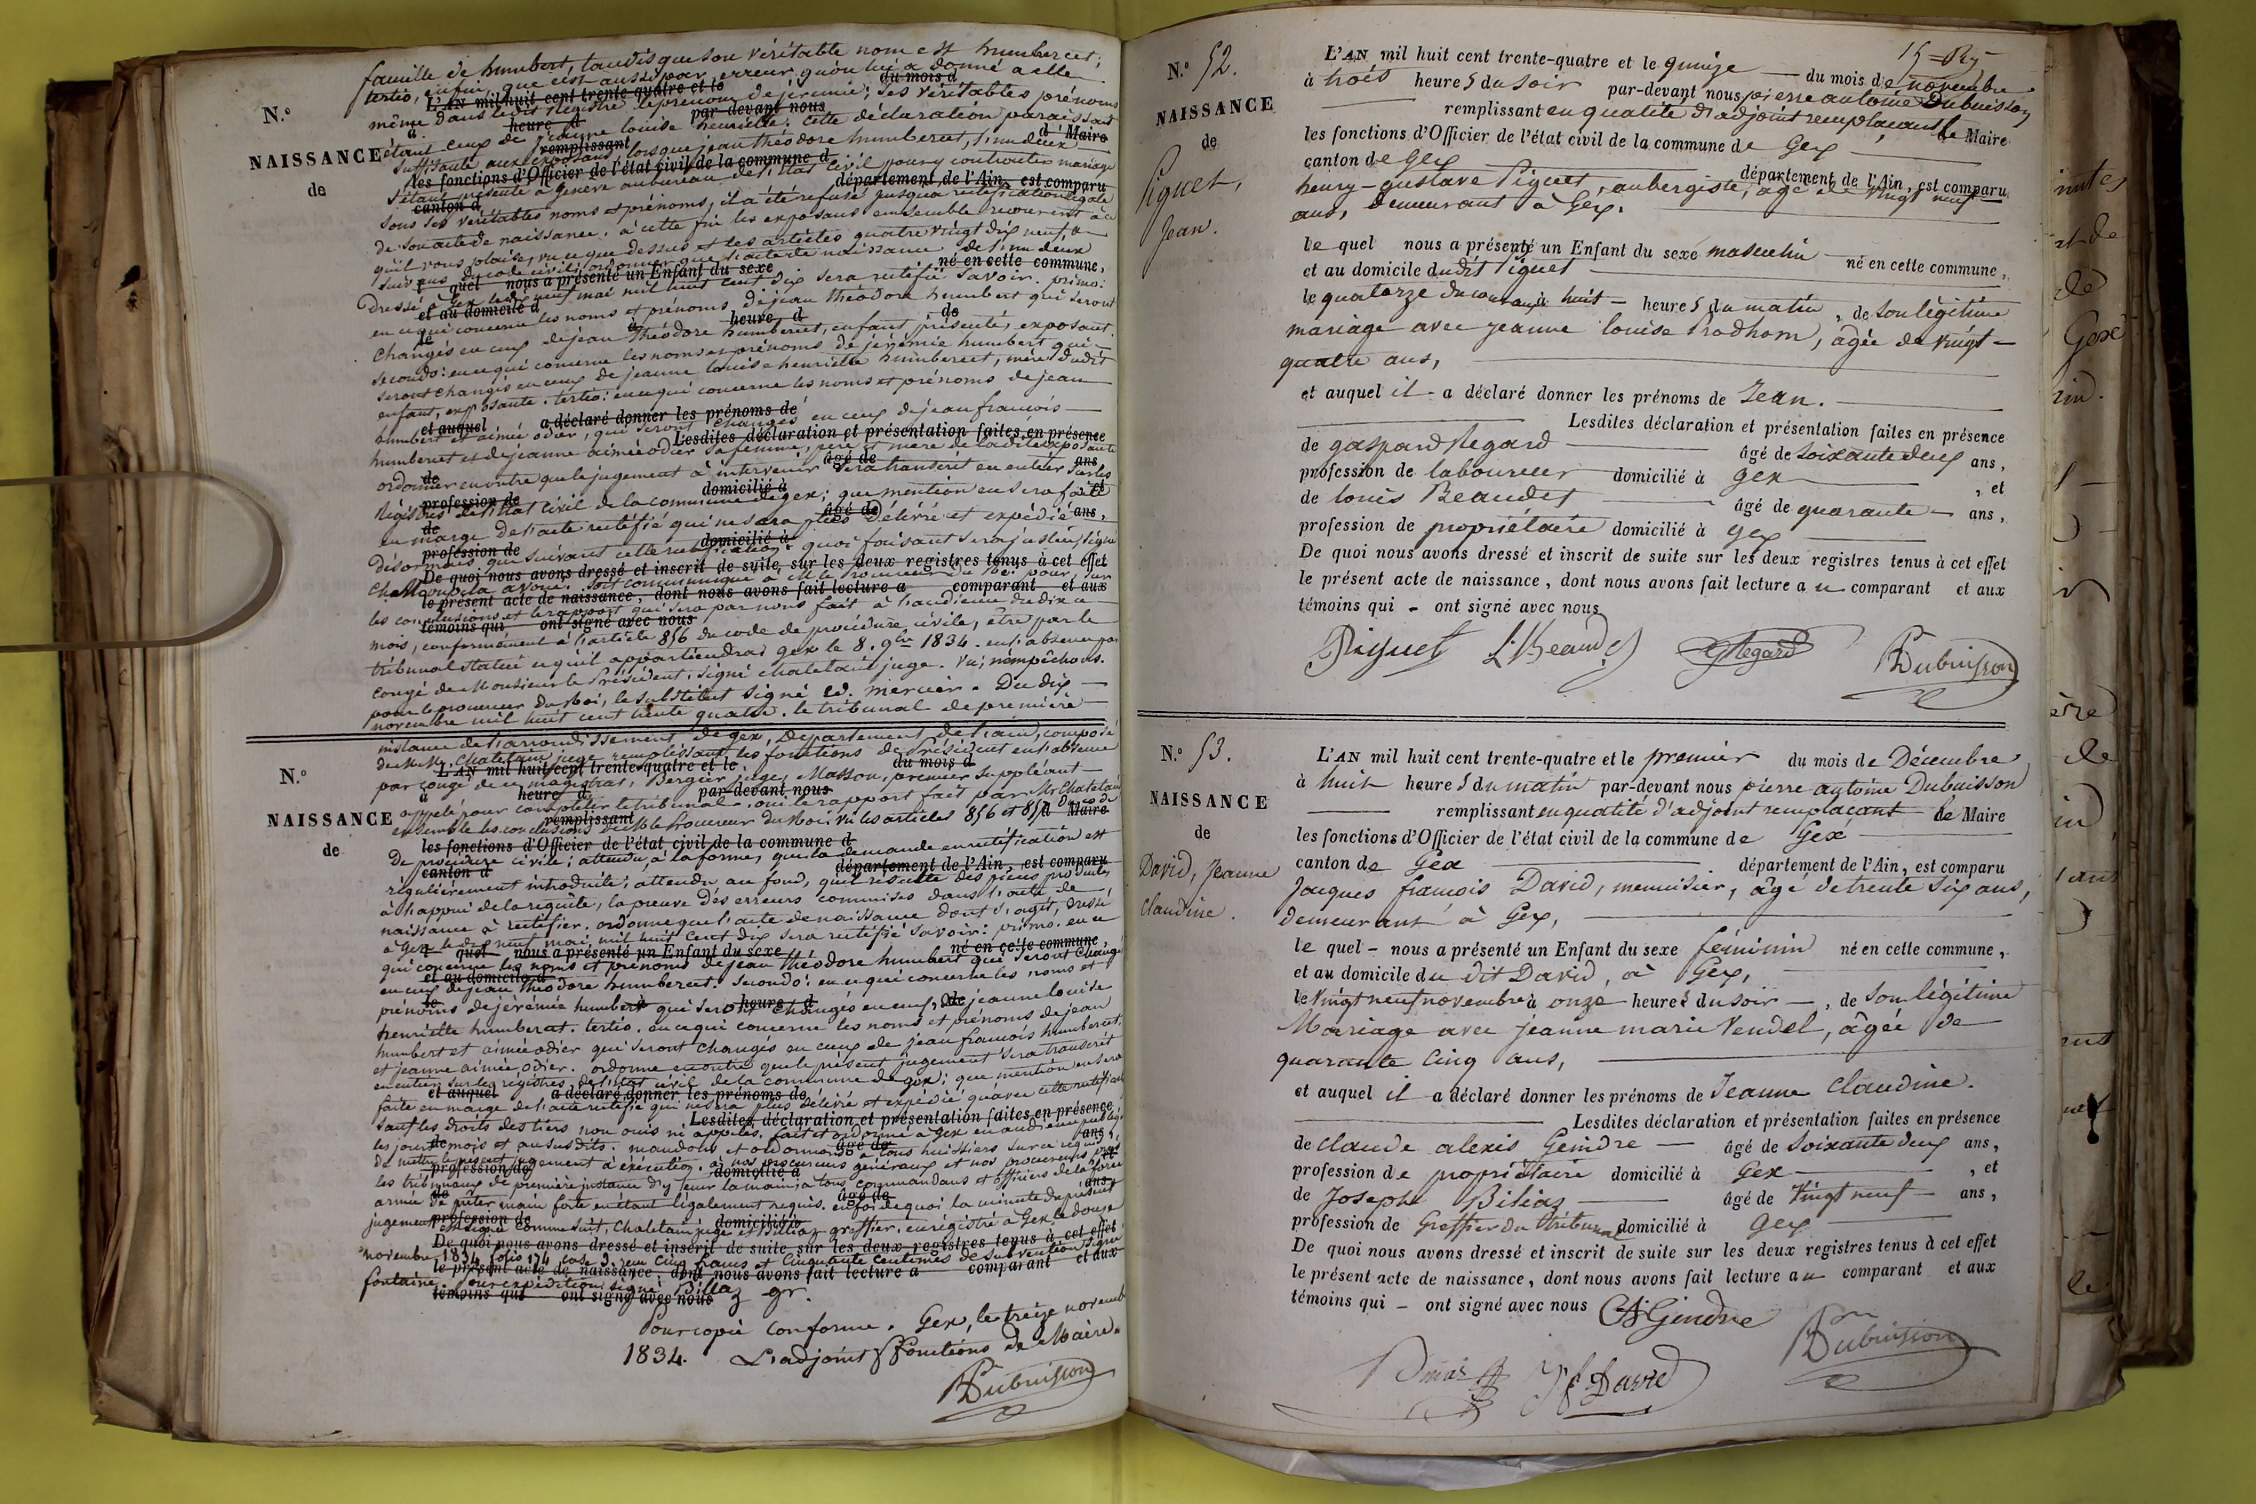 famille de humbert, tandis que son véritable nom est humbercet;
tertio, enfin, que c'est aussi par erreur qu'on lui a donné a elle
L'AN mil huit cent trente-quatre et le du mois d
même dans ledit registre le prénom de jérémie; ses véritables prénoms
à heure d par-devant nous
N.º
étant ceux de jeanne louise henriette; cette déclaration paraissait
remplissant d Maire
NAISSANCE
suffisante aux exposans, lorsque jean théodore humbercet, l'un deux
les fonctions d'Officier de l'état civil de la commune d
de
s'étant présenté a genève au bureau de l'état civil pour y contracter mariage
canton d département de l'Ain, est comparu
sous ses véritables noms et prénoms, il a été refusé jusqu'a rectification légale
de son acte de naissance. a cette fin les exposans ensemble recourent à ce
qu'il vous plaise, vu ce que dessus et les articles quatre vingt dix neuf, et
suivans du code civil, ordonner que l'acte de naissance de l'un deux
l quel nous a présenté un Enfant du sexe né en cette commune,
Dressé à Gex le dix neuf mai mil huit cent dix sera rectifié savoir. primo:
et au domicile d
en ce qui concerne les noms et prénoms de jean théodore humbert qui seront
le à heure d de
changés en ceux de jean théodore humbercet, enfant présenté, exposant.
secondo: en ce qui concerne les noms et prénoms de jérémie humbert qui
seront changés en ceux de jeanne louise henriette humbercet, mère dudit
enfant, exposante. tertio: en ce qui concerne les noms et prénoms de jean
et auquel a déclaré donner les prénoms de
humbert et aimée odier, qui seront changés en ceux de jean françois
Lesdites déclaration et présentation faites en présence
humbercet et de jeanne aimée odier sa femme, père et mère de ladite exposante
de âgé de ans,
ordonner en outre que le jugement à intervenir sera transcrit en entier sur les
profession de domicilié à , et
Régistres de l'état civil de la commune de gex; que mention en sera faite
de âgé de ans,
en marge de l'acte rectifié qui ne sera plus délivré et expédié
profession de domicilié à
désormais que suivant cette rectification. quoi faisant sera justice, signé
De quoi nous avons dressé et inscrit de suite sur les deux registres tenus à cet effet
avoué. soit communiqué à M. le Procureur du Roi pour sur
le présent acte de naissance, dont nous avons fait lecture a comparant et aux
les conclusions et le rapport qui sera par nous fait à l'audience du dix ce
témoins qui ont signé avec nous
mois, conformément à l'article 856 du code de procédure civile, être par le
tribunal statué ce qu'il appartiendra; gex le 8. 9bre 1834. en l'absence par
congé de Monsieur le Président. signé Chatelain juge. Vu; n'empêchons.
pour le procureur du Roi, le substitut signé ed. mercier. Du dix
novembre mil huit cent trente quatre. le tribunal de première
instance de l'arrondissement de gex, Département de l'ain, composé
de MM. Chatelain juge remplissant les fonctions de Président en l'absence
N.º
L'AN mil huit cent trente-quatre et le du mois d
par congé de ce magistrat, Bergier juge, Masson, premier suppléant
à heure d par-devant nous
appelé pour compléter le tribunal. oui le rapport fait par Mr Chatelain
NAISSANCE
remplissant d Maire
ensemble les conclusions de M. le Procureur du Roi. Vu les articles 856 et 857 du code
les fonctions d'Officier de l'état civil de la commune d
de
de procédure civile; attendu, à la forme, que la demande en rectification est
canton d département de l'Ain, est comparu
régulièrement introduite; attendu au fond, qu'il résulte des pièces produites
à l'appui de la requête, la preuve des erreurs commises dans l'acte de
naissance à rectifier. ordonne que l'acte de naissance dont s'agit, dressé
a Gex le dix neuf mai, mil huit cent dix sera rectifié savoir: primo. en ce
l quel nous a présenté un Enfant du sexe né en cette commune,
qui concerne les noms et prénoms de jean théodore humbert qui seront changé
et au domicile d
en ceux de jean théodore humbercet. secondo: en ce qui concerne les noms et
le à heure d de
prénoms de jérémie humbert qui seront changés en ceux, de jeanne louise
henriette humbercet. tertio. en ce qui concerne les noms et prénoms de jean
humbert et aimée odier qui seront changés en ceux de jean françois humbercet,
et jeanne aimée odier. ordonne en outre que le présent jugement sera transcrit
en entier sur les régistres de l'état civil de la commune de gex; que mention en sera
et auquel a déclaré donner les prénoms de
faite en marge de l'acte rectifié qui ne sera plus délivré et expédié qu'avec cette rectification
Lesdites déclaration et présentation faites en présence
sauf les droits des tiers non ouis ni appelés. fait et ordonné à Gex en audience publique
de âgé de ans,
les jour, mois et an susdits. mandons et ordonnons à tous huissiers sur ce requis
profession de domicilié à , et
de mettre le présent jugement à exécution. à nos procureurs généraux et nos procureurs près
les tribunaux de première instance d'y tenir la main, à tous commandans et officiers de la force
de âgé de ans,
armée de prêter main forte en étant légalement requis. en foi de quoi la minute du présent
profession de domicilié à
jugement est signée comme suit, Chatelain juge et Billiaz greffier. enrégistré à Gex le douze
De quoi nous avons dressé et inscrit de suite sur les deux registres tenus à cet effet
novembre 1834, folio 174, case 3. reçu cinq francs et cinquante centimes de subvention signé
le présent acte de naissance, dont nous avons fait lecture a comparant et aux
fontaine. pour expédition signé Billiaz gr.
témoins qui ont signé avec nous
Pour copie conforme. Gex, le treize novemb
1834. L'adjoint ff fonctions de Maire.
PDubuisson
15 = Rg
N.º 52.
L'AN mil huit cent trente-quatre et le quinze du mois de novembre
à trois heures du soir par-devant nous pierre antoine Dubuisson
NAISSANCE
remplissant en qualité d'adjoint remplaçant le Maire
de
les fonctions d'Officier de l'état civil de la commune de Gex
Piguet,
canton de Gex département de l'Ain, est comparu
henry-gustave Piguet, aubergiste, âgé de vingt neuf
Jean.
ans, demeurant à Gex.
le quel nous a présenté un Enfant du sexe masculin né en cette commune,
et au domicile dudit Piguet
le quatorze du courant à huit heures du matin, de son légitime
mariage avec jeanne louise Prodhom, âgée de vingt-
quatre ans,
et auquel il a déclaré donner les prénoms de Jean.
Lesdites déclaration et présentation faites en présence
de gaspard Regard âgé de soixante deux ans,
profession de laboureur domicilié à gex , et
de louis Beaudet âgé de quarante ans,
profession de propriétaire domicilié à gex
De quoi nous avons dressé et inscrit de suite sur les deux registres tenus à cet effet
le présent acte de naissance, dont nous avons fait lecture au comparant et aux
témoins qui - ont signé avec nous
Piguet L. Beaudet G Regard PDubuisson
N.º 53.
L'AN mil huit cent trente-quatre et le premier du mois de Décembre
à huit heures du matin par-devant nous pierre antoine Dubuisson
NAISSANCE
remplissant en qualité d'adjoint remplaçant le Maire
de
les fonctions d'Officier de l'état civil de la commune de Gex
David, Jeanne
canton de Gex département de l'Ain, est comparu
Claudine.
Jacques françois David, menuisier, âgé de trente six ans,
demeurant à Gex,
le quel - nous a présenté un Enfant du sexe féminin né en cette commune,
et au domicile du dit David, à Gex,
le vingt neuf novembre à onze heures du soir, de son légitime
Mariage avec jeanne marie Vendel, âgée de
quarante cinq ans,
et auquel il a déclaré donner les prénoms de Jeanne Claudine.
Lesdites déclaration et présentation faites en présence
de claude alexis Gendre âgé de soixante deux ans,
profession de propriétaire domicilié à Gex , et
de Joseph Billiaz âgé de vingt neuf ans,
profession de Greffier du tribunal domicilié à Gex
De quoi nous avons dressé et inscrit de suite sur les deux registres tenus à cet effet
le présent acte de naissance, dont nous avons fait lecture au comparant et aux
témoins qui - ont signé avec nous CA Gendre
PDubuisson
J f David